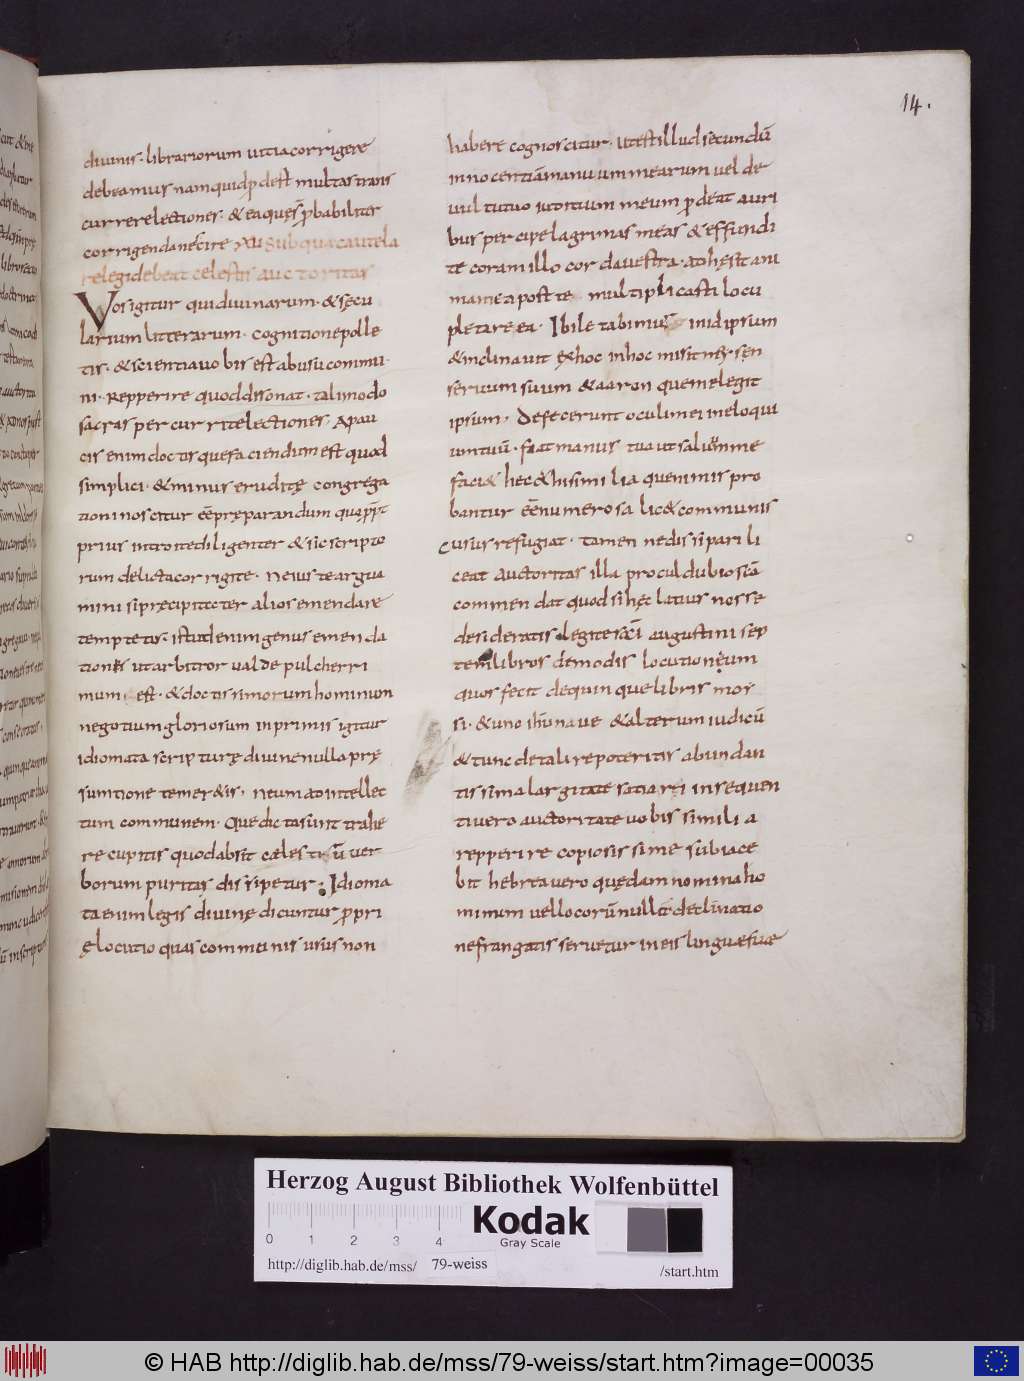 14.
divinis. librariorum vitia corrigere
debeamus nam quid pdest multas trans
currere lectiones. & ea quę s pbabiliter
corrigenda nescire XV Sub qua cautela
relegi debeat celestis auctoritas
Vos igitur qui divinarum. & sęcu
larium litterarum. cognitione polle
tis. & scientia vobis est ab usu commu
ni. Repperire quod dissonat. tali modo
sacras percurrite lectiones. Apau
cis enim doctis que faciendum est quod
simplici. & minus eruditę congrega
tioni noscitur eē pręparandum
prius introite diligenter & sic scripto
rum delicta corrigite. Ne iuste argua
mini si pręcipitęter alios emendare
temptetis. istud enim genus emenda
tionis ut arbitror valde pulcherri
mum est. & doctissimorum hominum
negotium gloriosum inprimis igitur
idiomata scripturę divine nulla prę
sumtione temer&is. Ne cum ad intellec
tum communem. Que dicta sunt trahe
re cupitis quod absit cælestiū ver
borum puritas dissipetur. Idioma
ta enim legis divinę dicuntur ppri
ę locutio quas communis usus non
habere cognoscitur. ut est illud secundū
innocentiā manuum mearum vel de
vul tu tuo iuditium meum pdeat auri
bus percipe lagrimas meas & effundi
te coram illo corda vestra. adhęsit ani
ma mea post te multiplicasti locu
pletare ea. Ibi letabimus in id ipsum
& inclinavit ex hoc in hoc misit moysen
servum suum & aaron quem elegit
ipsum. Defecerunt oculi mei in eloqui
um tuū. fiat manus tua ut salū me
faci& hec & his similia quę nimis pro
bantur eē numerosa lic& communis
usus refugiat. tamen ne dissipari li
ceat auctoritas illa procul dubio scā
commendat quod si hęc latius nosse
desideratis legite scī augustini sep
tem libros de modis locutionęum
quos fecit de quinque libris moy
si. & uno ihū nave & alterum iudicū
& tunc de tali re poteritis abundan
tissima largitate satiari in sequen
ti vero auctoritate vobis similia
repperire copiosissime subiace
bit hebrea vero quędam nomina ho
minum vel locorū nulla declinatio
ne frangatis servetur in eis linguę suæ
Herzog August Bibliothek Wolfenbüttel
0 1 2 3 4
Kodak
Gray Scale
http://diglib.hab.de/mss/ 79-weiss
/start.htm
© HAB http://diglib.hab.de/mss/79-weiss/start.htm?image=00035